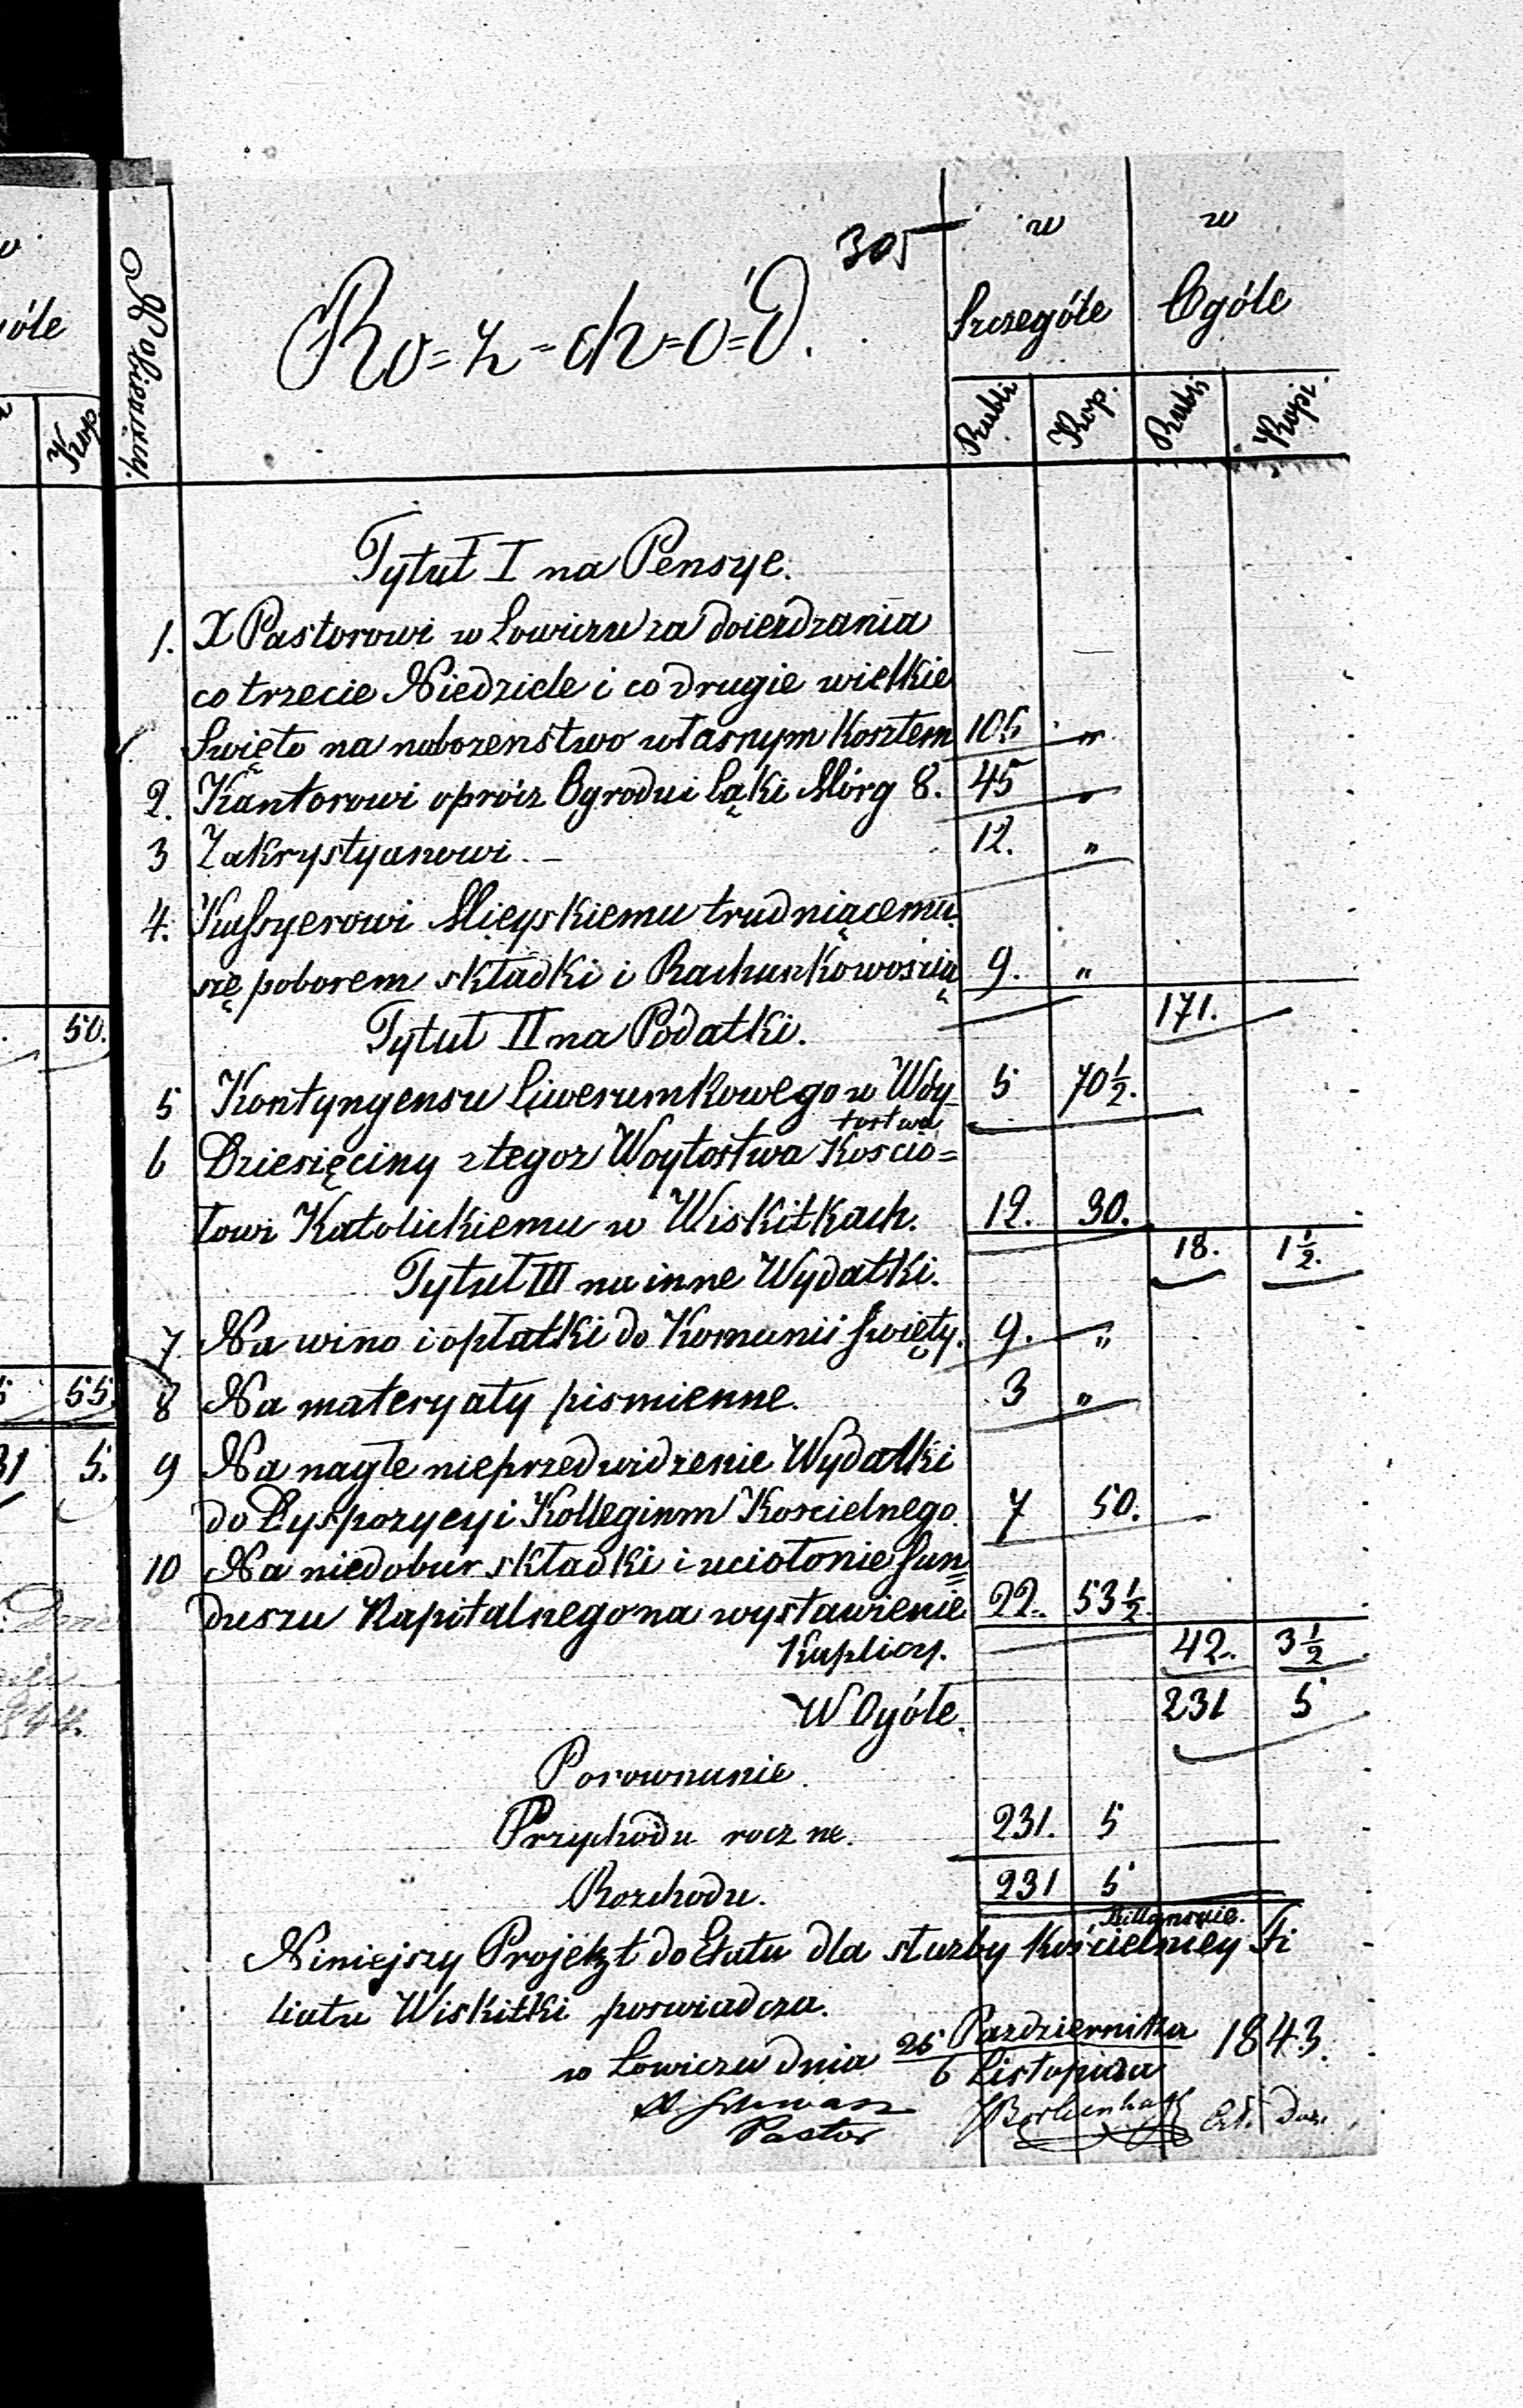 305
w w
Szczególe Ogóle
Ro=z-ch=ó=d.
Rubli Kop. Rubli Kopi.
óle
Kop
Tytuł I na Pensye.
1. X Pastorowi w Łowiczu za doierdzania
co trzecie Niedziele i co drugie wielkie
Święto na nabozenstwo własnym Kosztem 105 "
2. Kantorowi oprócz Ogrodu i Łąki Mórg 8. 45 "
3 Zakrystyanowi. - 12. "
4. Kassyerowi Mieyskiemu trudniącemu
się poborem składki i Rachunkowością 9. "
171.
50.
Tytuł II na Podatki.
5 Kontyngensu Liwerunkowego w Woy- 5 70½.
tostwa
6 Dziesięciny z tegoz Woytostwa Koscio=
łowi Katolickiemu w Wiskitkach. 12. 30.
18. 1½.
Tytuł III na inne Wydatki.
7 Na wino i opłatki do Komunii Święty. 9. "
8 Na materyały pismienne. 3 "
55
9 Na nagle nieprzedwidzenie Wydatki
31 5.
do Dyspozycyi Kollegium Koscielnego 7 50.
10 Na niedobur składki i uciołonie fun=
duszu Kapitalnego na wystawienie 22. 53½
Kaplicy. 42. 3½
44.
W Ogóle. 231 5
Porownanie.
Przychodu roczne. 231. 5
Rozchodu. 231 5
Billansuie.
Niniejszy Projekt do Etatu dla służby Kościelniey Fi
liału Wiskitki poswiadcza.
w Łowiczu dnia 25 Pazdziernika 1843.
6 Listopada
Pastor